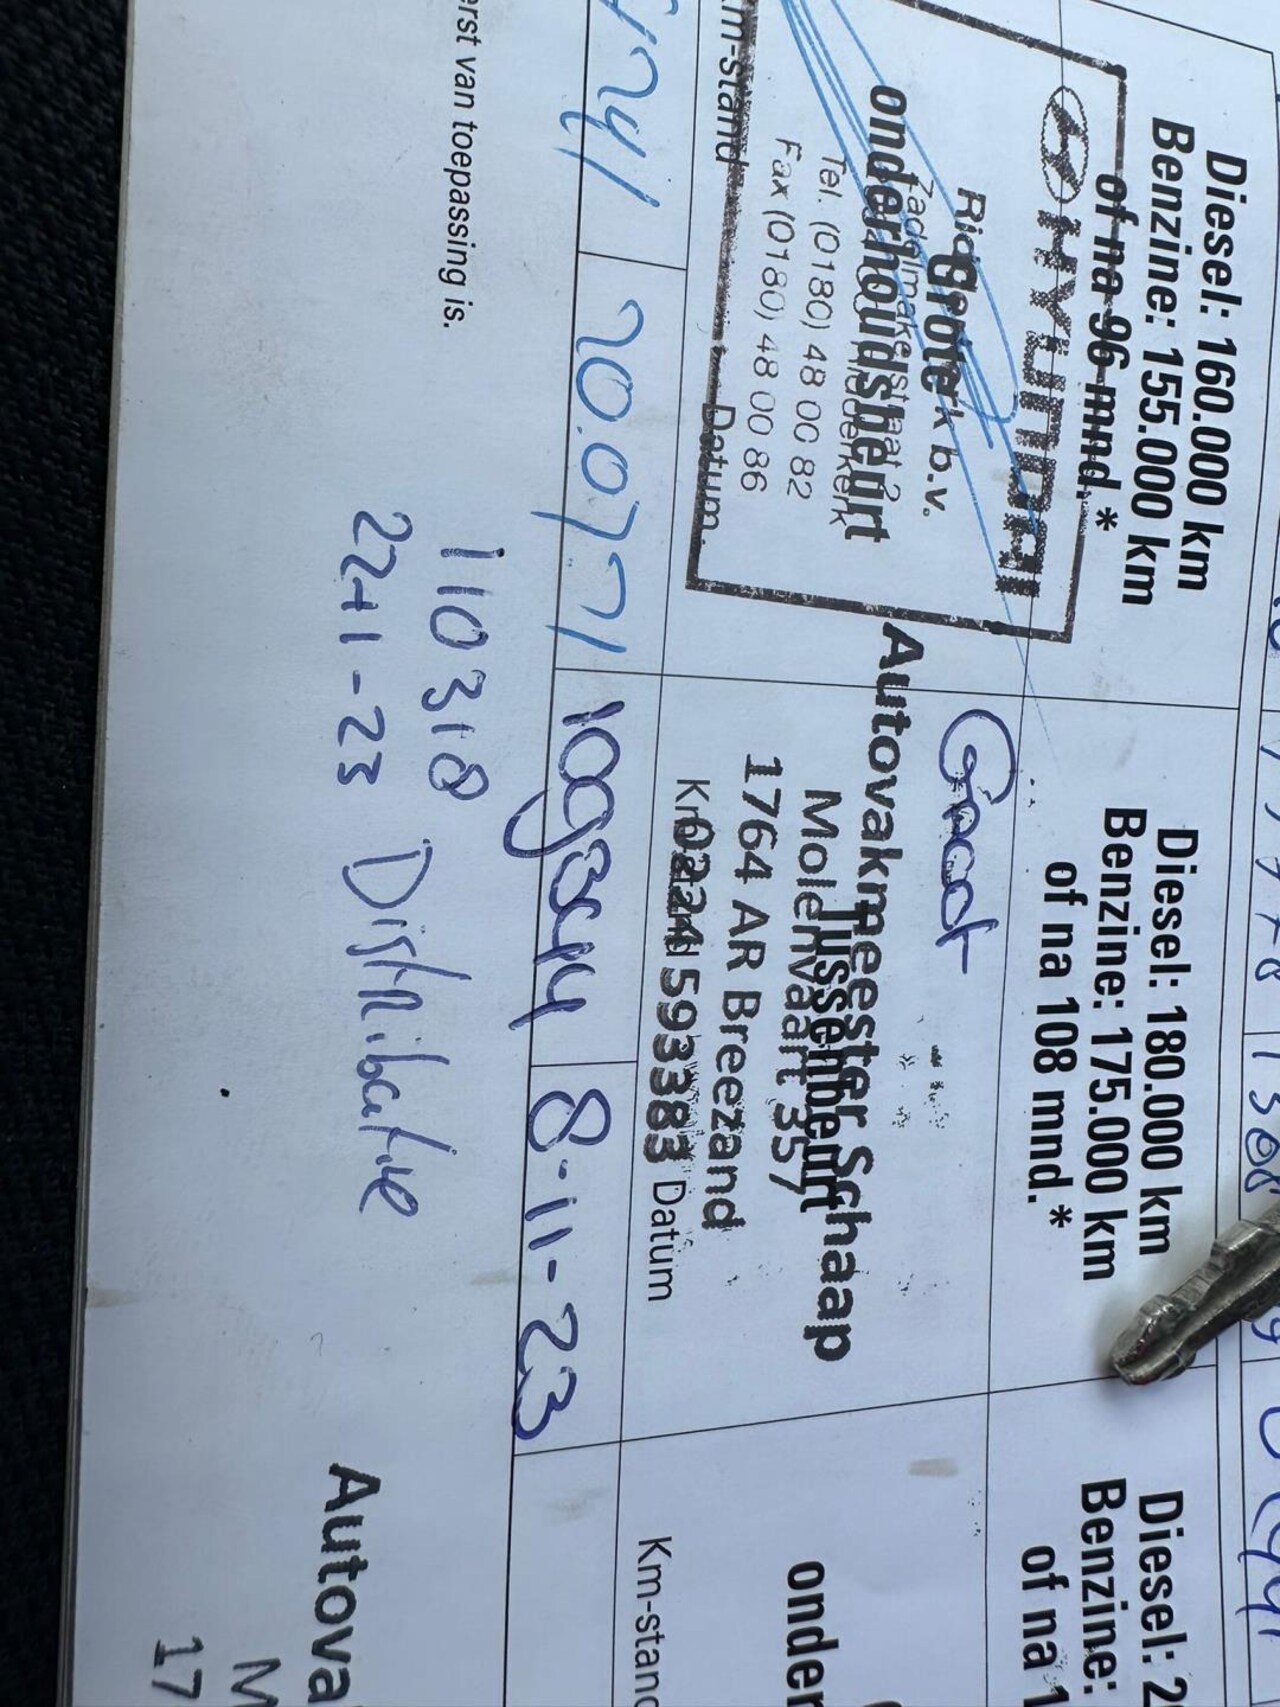 Diesel: 160.000 km
Benzine: 155.000 km
of na 96 mnd.*
HYUNDAI
Grote
onderhoudsbeurt
b.v.
Tel. (0180) 48 00 82
Fax (0180) 48 00 86
km-stand
Datum
20.07.71
Diesel: 180.000 km
Benzine: 175.000 km
of na 108 mnd.*
Groot
Autovakmeester Schaap
Tussenbeurt
Molenvaart 357
1764 AR Breezand
0224 593383
Datum
109344
8-11-23
Diesel: 2
Benzine:
of na 1
onder
Km-stand
erst van toepassing is.
110318
22-11-23 Distributie
Autova
M
17